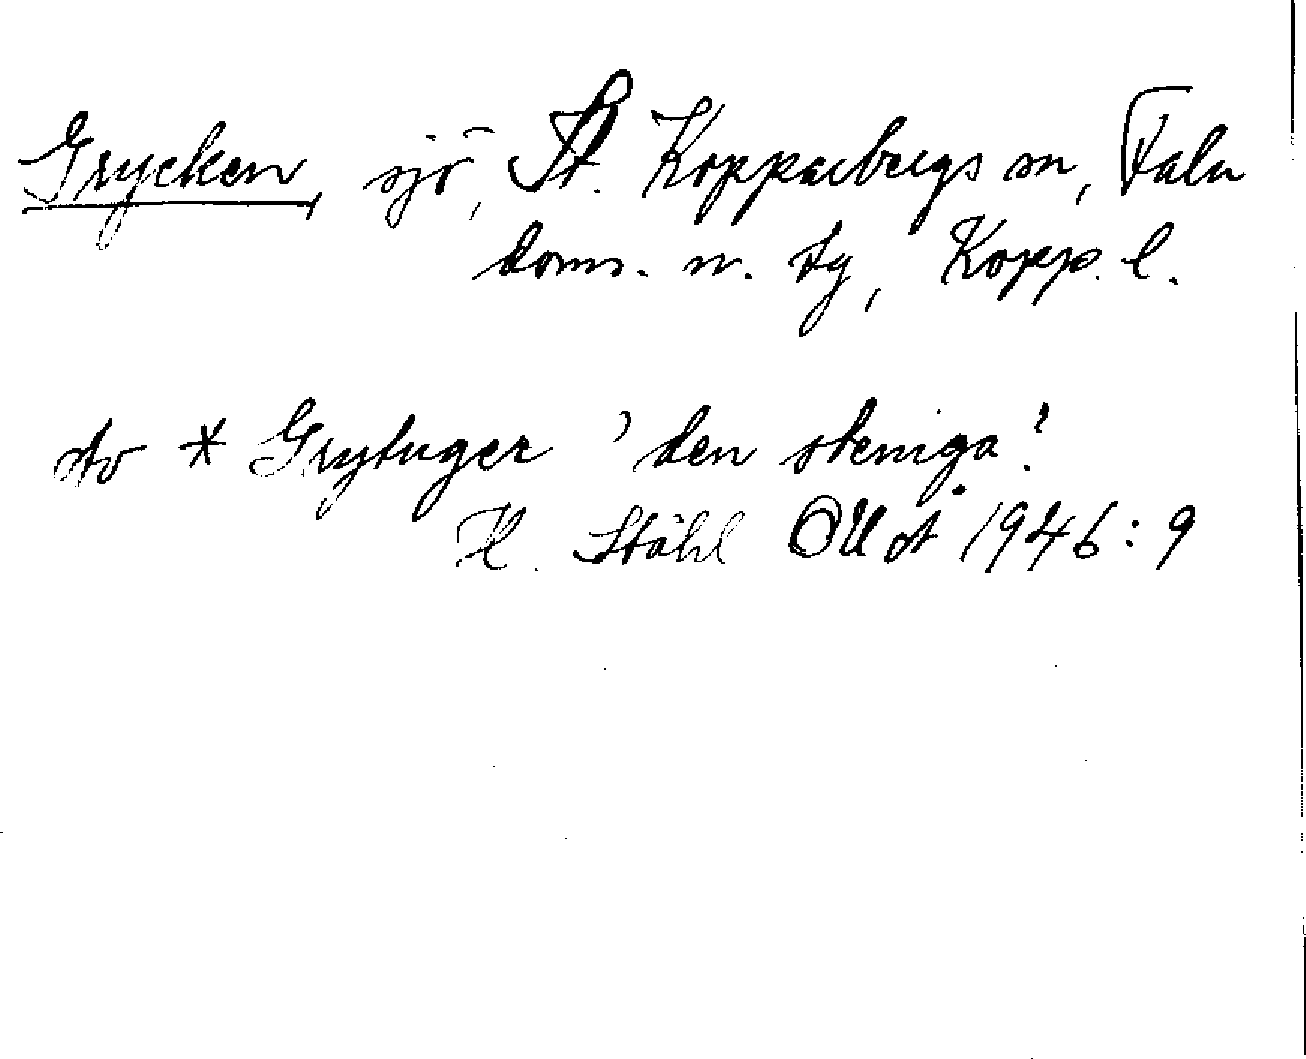 Grycken, sjö, St. Kopparbergs sn, Falu
doms. n. tg, Kopp. l.
av * Grytuger 'den steniga'.
H. Ståhl OUÅ 1946: 9